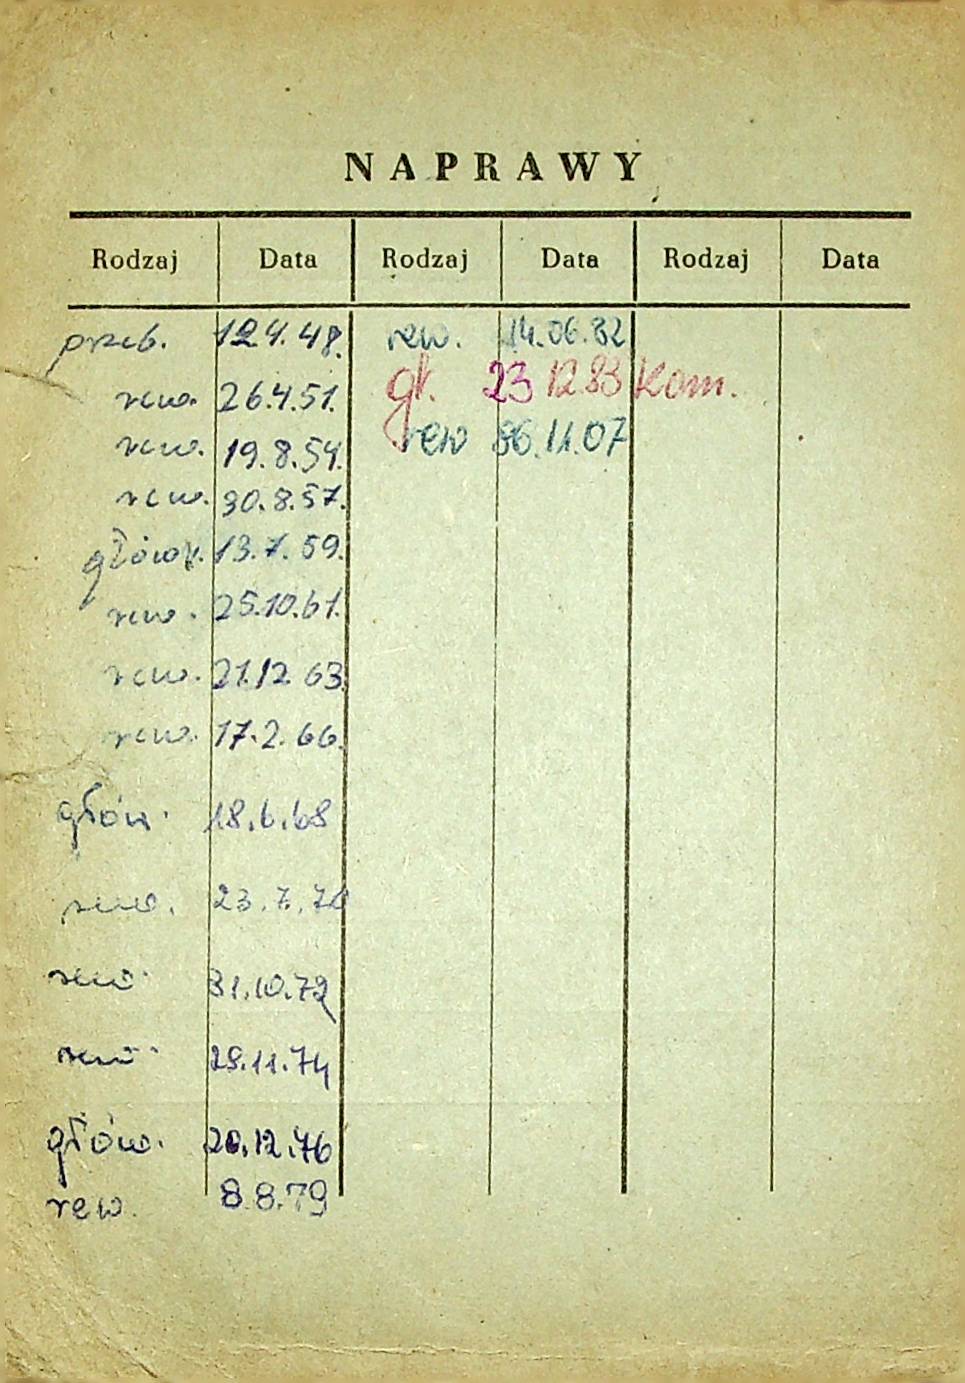 NAPRAWY
Rodzaj Data Rodzaj Data Rodzaj Data
przeb. 12.4.48. rew. 14.06.82
rew. 26.4.51. gł. 23 12 83 Kam.
rew. 19.8.54. rew 86.11.07
rew. 30.8.57.
główn. 13.7.59.
rew. 25.10.61.
rew. 21.12.63.
rew. 17.2.66.
główn. 18.6.68
rew. 23.7.70
rew. 31.10.72
rew. 29.11.74
główn. 20.12.76
rew. 8.8.79